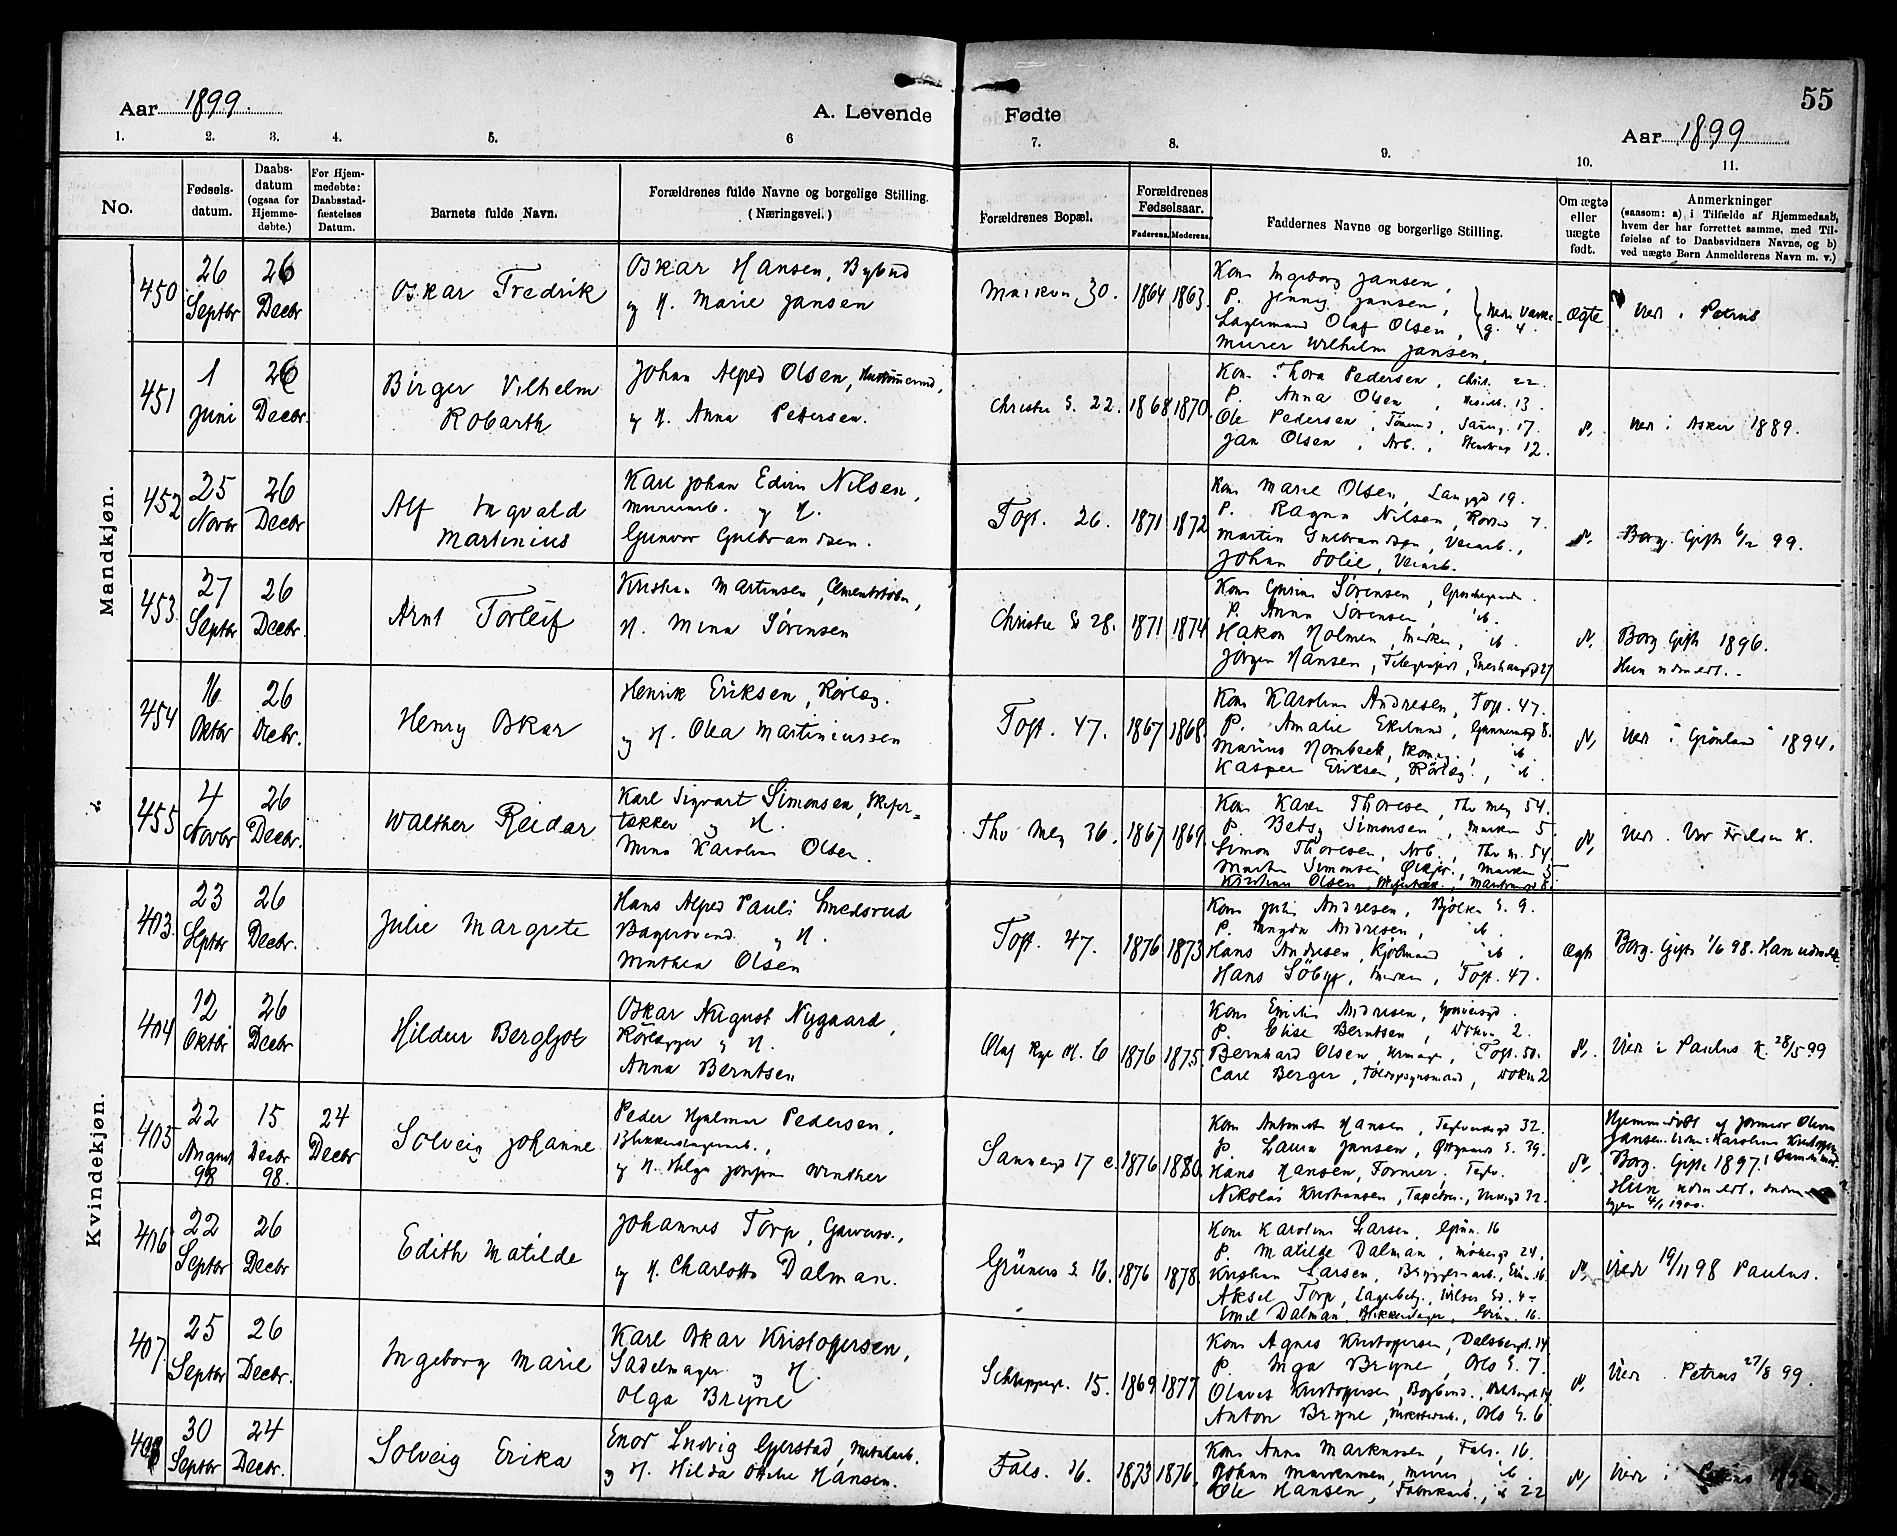 Aar 1899.
A. Levende Fødte
55
Aar 1899
1. 2. 3. 4. 5. 6 7. 8. 9. 10. 11.
No.
Fødsels-
datum.
Daabs-
datum
(ogsaa for
Hjemme-
døbte.)
For Hjem-
medøbte:
Daabsstad-
fæstelses
Datum.
Barnets fulde Navn.
Forældrenes fulde Navne og borgelige Stilling.
(Næringsvei.)
Forældrenes Bopæl.
Forældrenes
Fødselsaar.
Faderens. Moderens.
Faddernes Navne og borgerlige Stilling.
Om ægte
eller
uægte
født.
Anmerkninger
(saasom: a) i Tilfælde af Hjemmedaab,
hvem der har forrettet samme, med Til-
føielse af to Daabsvidners Navne, og b)
ved uægte Børn Anmelderens Navn m. v.)
Mandkjøn.
450
26
Septbr
26
Decbr
Oskar Fredrik
Oskar Hansen, Bybud
og H. Marie Jansen
30.
1864 1863.
Kone Ingeborg Jansen,
P. Jenny Jansen,
Lagermand Olaf Olsen,
g. 4
Murer Wilhelm Jansen.
Ægte
Viet i Petrus
451
1
Juni
26
Decbr.
Birger Vilhelm
Robarth
Johan Alfred Olsen,
og H. Anna Pettersen.
Christies G. 22.
1868 1870.
Kone Thora Pedersen, Chr. 22.
P. Anna Olsen, 13.
Ole Pedersen, Tømmermd, 17.
Jan Olsen, Arb., 12.
Viet i Asker 1889.
452
25
Novbr
26
Decbr
Alf Ingvald
Martinius
Karl Johan Edvin Nilsen,
Murerarb. og H.
Gunvor Gulbrandsen.
Toft. 26.
1871 1872
Kone Marie Olsen, Langgd 19.
P. Ragna Nilsen, 7.
Martin Gulbrandsen, Verarb.,
Johan Solie, Verarb.
Borg. Gift 6/2 99.
453
27
Septbr
26
Decbr.
Arnt Torleif
Kristian Martinsen, Cementstøber,
H. Mina Sørensen
Christies G 28.
1871 1874
Kone Gurine Sørensen,
P. Anna Sørensen, ib.
Hakon Holmen, ib.
Jørgen Hansen, Telegrafist, 27
Borg. Gift 1896.
Hun udmeldt.
454
16
Oktbr
26
Decbr.
Henry Oskar
Henrik Eriksen, Rørlæg.
og H. Olea Martiniussen
Toft. 47.
1867 1868.
Kone Karoline Andresen, Toft. 47.
P. Amalie Ekelund, 8.
Marius Hornbæk, ib
Kasper Eriksen, Rørlæg., ib.
Viet i Grønland 1894.
455
4
Novbr
26
Decbr.
Walther Reidar
Karl Sigvart Simonsen, Skifer-
tækker og H.
Mina Karoline Olsen.
Thv Mey 36.
1867 1869.
Kone Karen Thoresen, Thv Mey 54.
P. Betsy Simonsen, Marken 5.
Simon Thoresen, Arb., Thv M. 54.
Martin Simonsen, Marken 5
Kristian Olsen, 8.
Viet. Vor Frelsers K.
Kvindekjøn.
403.
23
Septbr
26
Decbr.
Julie Margrete
Hans Alfred Pauli Smedsrud
Bagersvend og H.
Mathea Olsen
Toft. 47.
1876 1873
Kone Julie Andresen, Bjølsen G. 9.
P. Magda Andresen, ib.
Hans Andresen, Kjøbmand, ib.
Hans Søbye, Toft. 47.
Ægte
Borg. Gift 1/6 98. Han udmeldt.
404
12
Oktbr
26
Decbr
Hildur Bergljot
Oskar August Nygaard,
Rørlægger og H.
Anna Berntsen
Olaf Ryes Pl. 6
1876 1875.
Kone Emilie Andresen,
P. Elise Berntsen, 2.
Bernhard Olsen, Toft. 50.
Carl Berger, 2
Viet i Paulus K. 28/5 99
405
22
August
98
15
Decbr
98.
24
Decbr
Solveig Johanne
Peder Hjalmar Pedersen,
Blikkenslagerarb.,
og H. Helga Josefine Winther
Sannergd 17 c.
1876 1880.
Kone Antonette Hansen, 32.
P. Laura Jansen, 39.
Hans Hansen, Former,
Nikolai Kristiansen, 32.
Hjemmedøbt af
Borg. Gift 1897.
Hun udmeldt.
1900.
406
22
Septbr
26
Decbr
Edith Matilde
Johannes Torp, Garversv.,
og H. Charlotte Dalman.
Grüners G 16.
1876 1878.
Kone Karoline Larsen, Grün. 16
P. Matilde Dalman, 24,
Kristian Larsen, Bryggeriarb., Grün. 16
Aksel Torp,
Emil Dalman, Blikkenslager, Grün. 16.
Viet 19/11 98 Paulus.
407
25
Septbr
26
Decbr.
Ingeborg Marie
Karl Oskar Kristoffersen,
Sadelmager og H.
Olga Bryne
Schleppegr. 15.
1869 1877
Kone Agnes Kristoffersen, Dalsbergst. 14
P. Inga Bryne, Oslo G. 7.
Olaves Kristoffersen,
Anton Bryne, Oslo G. 6
Viet. Petrus 27/8 99.
408
30
Septbr
24
Decbr.
Solveig Erika
Enor Ludvig Gjerstad, Metalarb.
og H. Hilda Otelie Hansen.
Fals. 16.
1873 1876.
Kone Anna Markussen, Fals. 16.
Johan Markussen, Murer, ib.
Ole Hansen, Fabrikarb., 22
Viet i